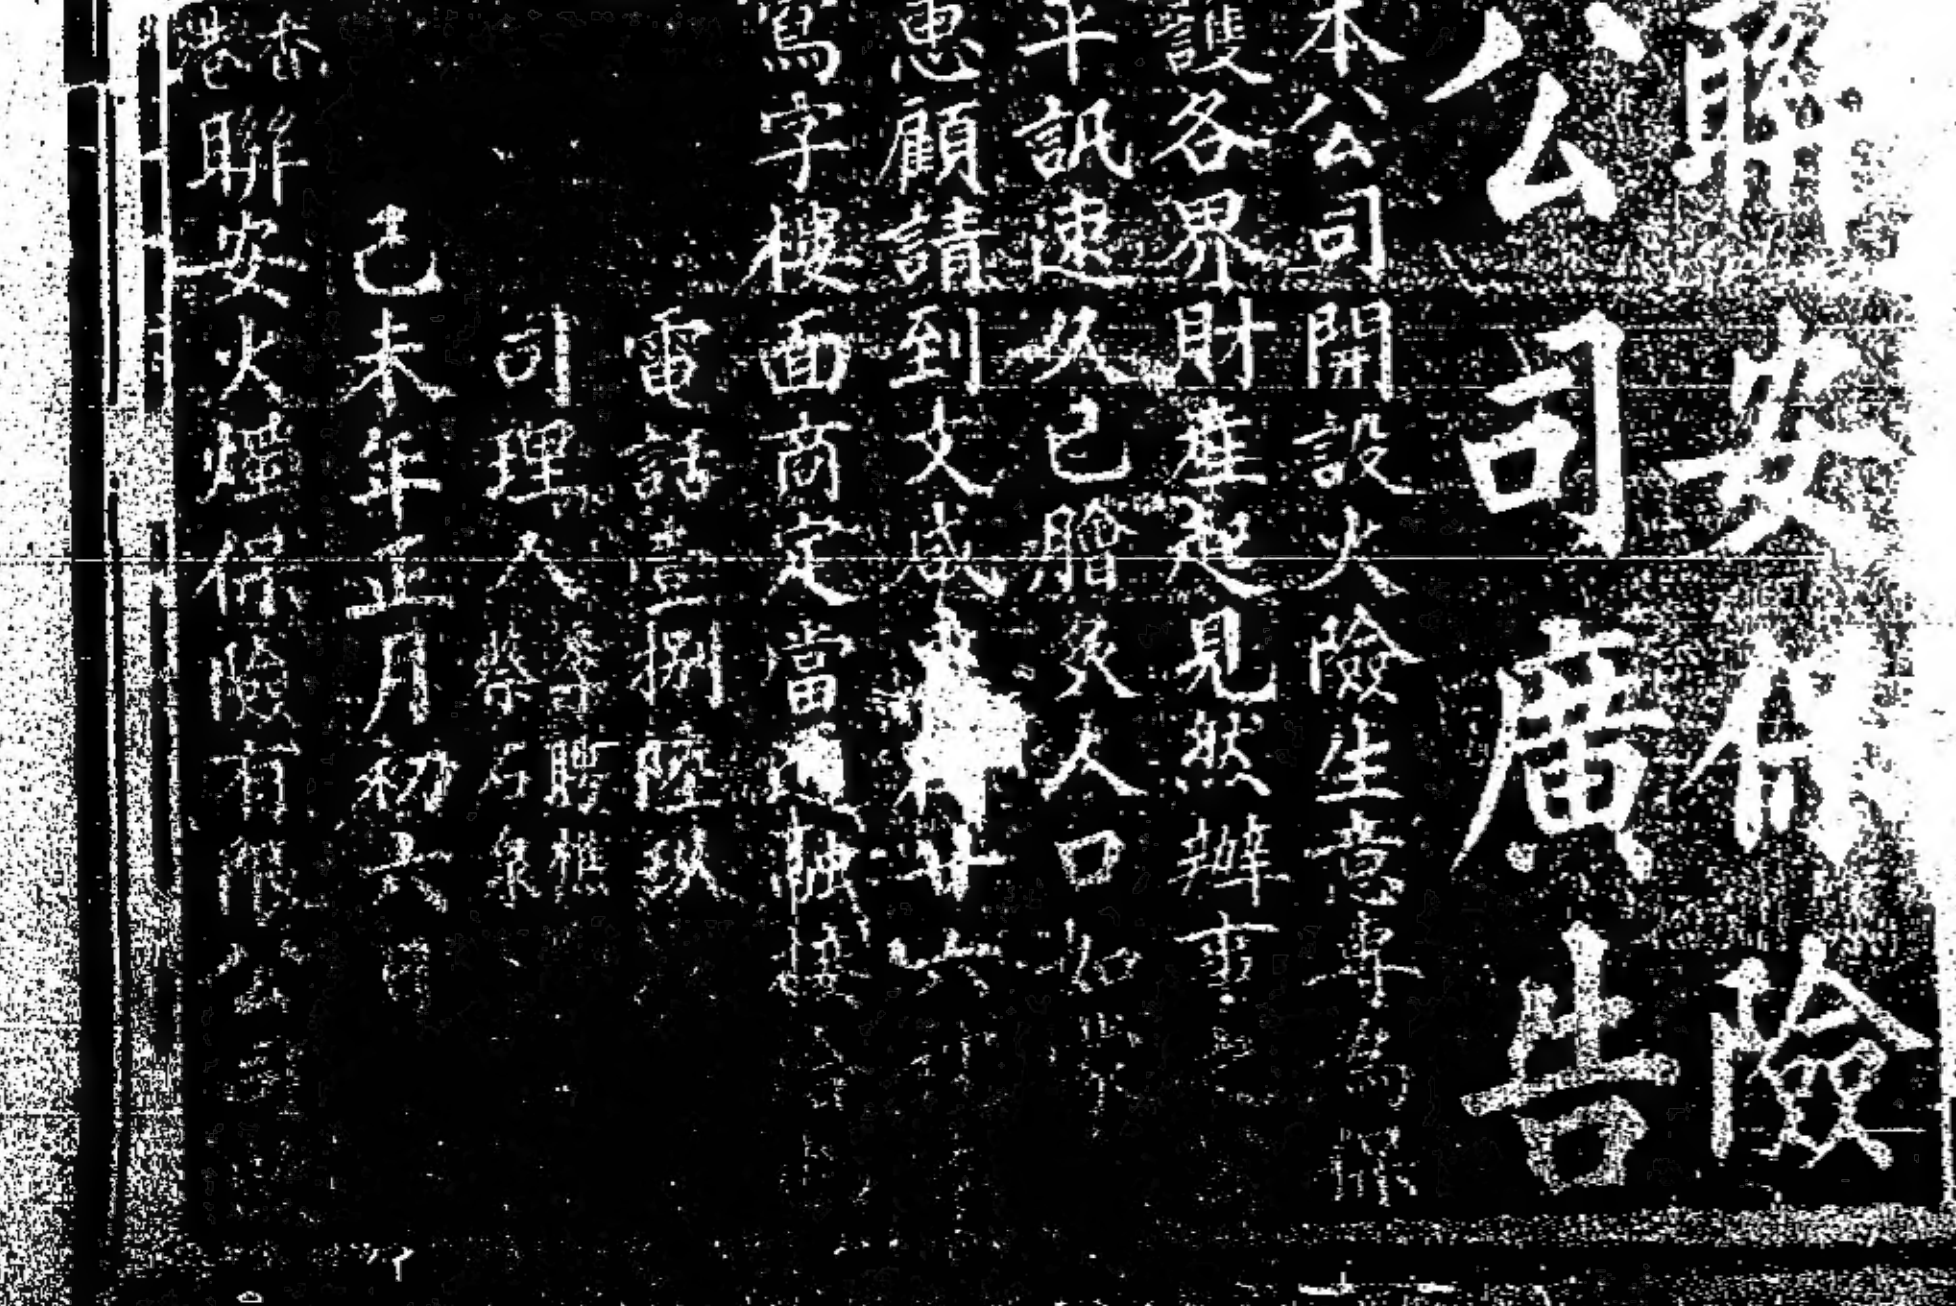 聯安保險
公司廣告
本公司開設火險生意專為保
護各界財產起見然辦事
平訊速久已膾炙人口如
惠顧請到文咸 廿六
寫字樓面商定當 接
電話壹捌陸玖
司理人 李聘樵 蔡石泉
己未年正月初六日
香港聯安火燭保險有限公司